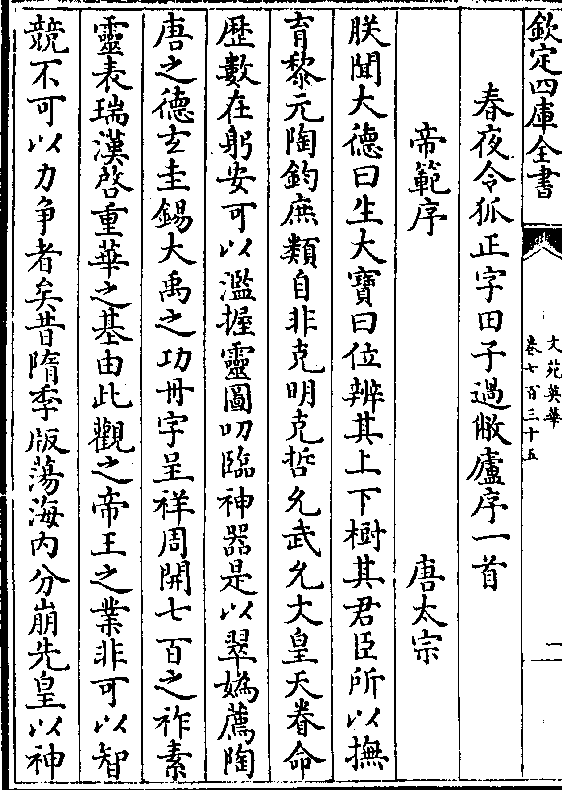 欽定四庫全書
文苑英華
卷七百三十五
二
春夜令狐正字田子過敝廬序一首
帝範序 唐太宗
朕聞大德曰生大寶曰位辨其上下樹其君臣所以撫
育黎元陶鈞庶類自非克明克哲允武允文皇天眷命
歴數在躬安可以濫握靈圖叨臨神器是以翠嬀薦陶
唐之德玄圭錫大禹之功丹字呈祥周開七百之祚素
靈表瑞漢啓重華之基由此觀之帝王之業非可以智
競不可以力爭者矣昔隋季版蕩海内分崩先皇以神